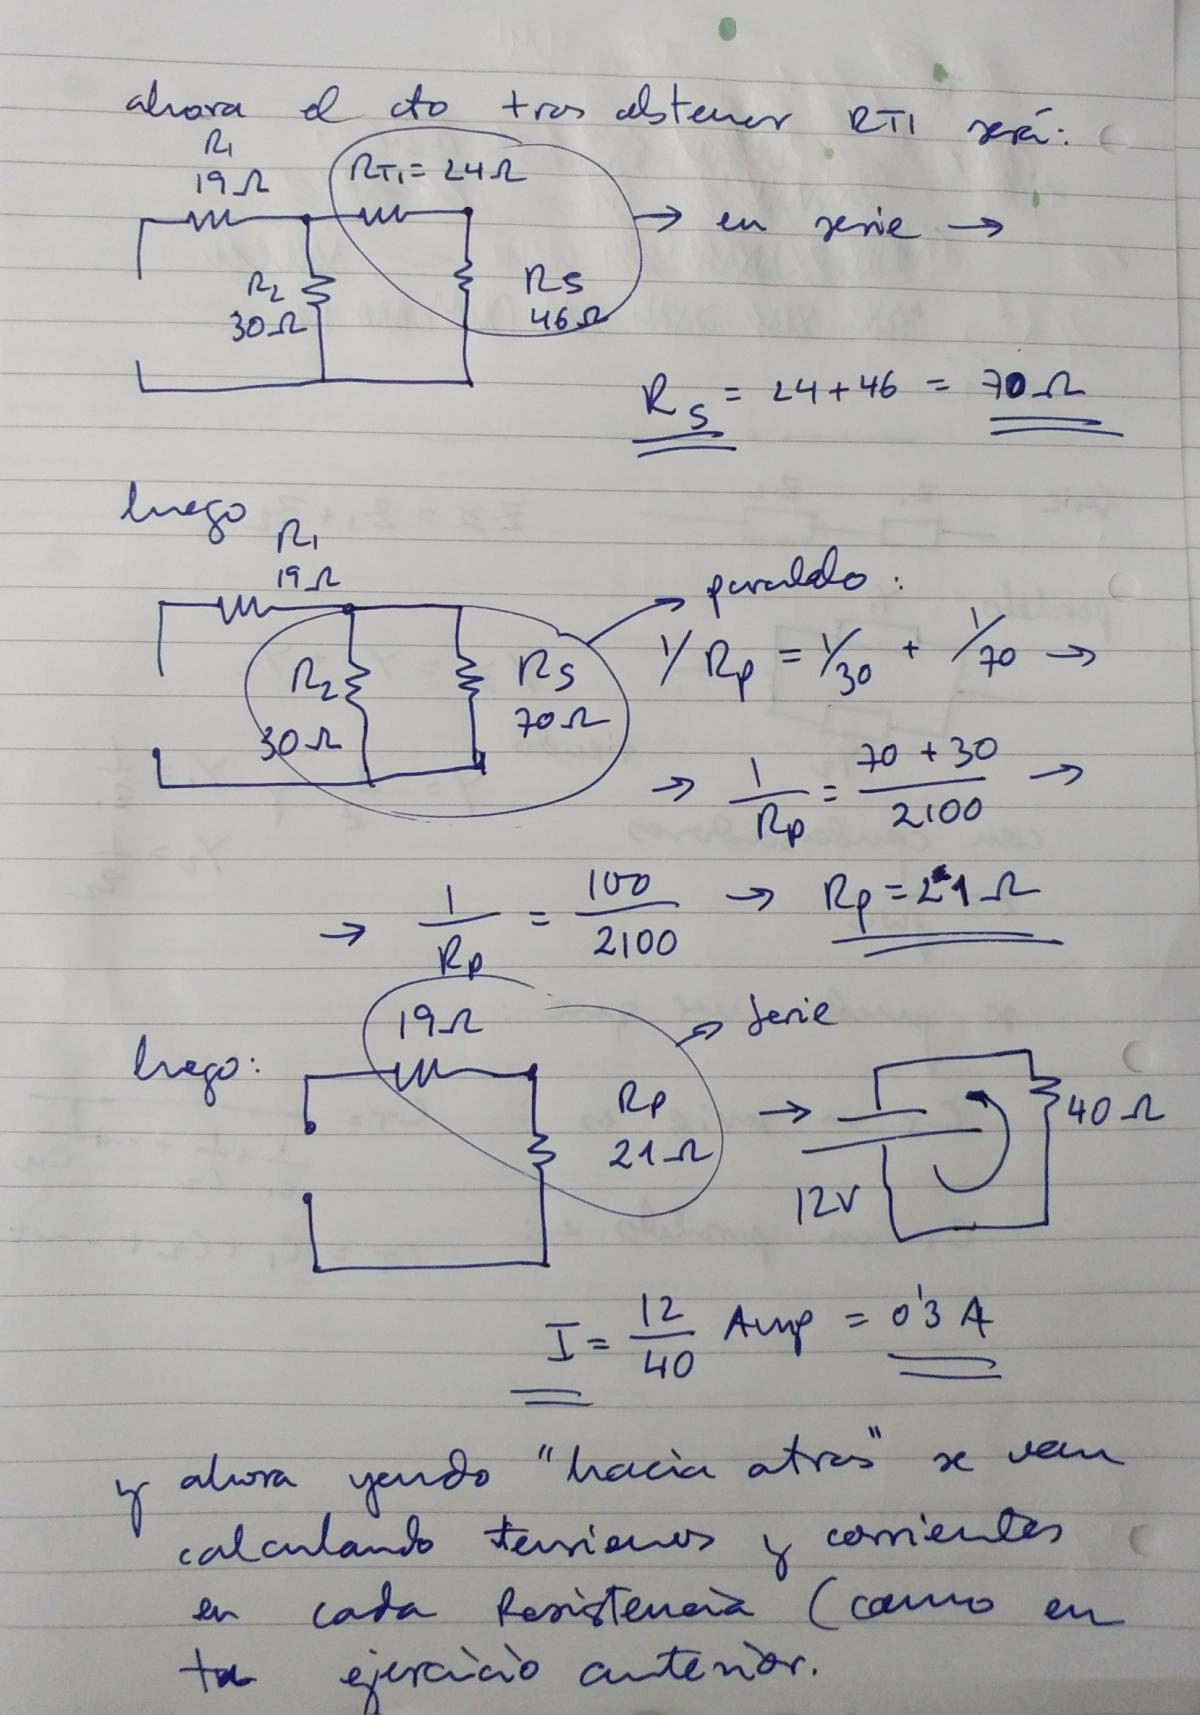 ahora el cto tras obtener RT1 será:
R1
19Ω
RT1 = 24Ω
→ en serie →
R2
30Ω
R5
46Ω
RS = 24+46 = 70Ω
luego
R1
19Ω
paralelo:
R2
30Ω
RS
70Ω
1/Rp = 1/30 + 1/70 →
→ 1/Rp = 70+30/2100 →
→ 1/Rp = 100/2100 → Rp = 21Ω
luego:
19Ω
serie
Rp
21Ω
→
12V
40Ω
I = 12/40 Amp = 0'3 A
y ahora yendo "hacia atras" se van
calculando tensiones y corrientes
en cada Resistencia (como en
ejercicio anterior.